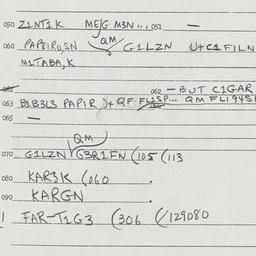 050 Z1NT1K MEJG M3N... 051 —
060 PAPEIRO,SN QM G1LZN U+C1FILN
M1TABA,K
062 — BUT C1GAR
063 B1B3L3 PAPIR )+ QF FL1SP... QM FL1945
065 —
QM
070 G1LZN G3R1FN (105 (113
080 KAR3K (060 .
090 KARGN .
FAR-T1G3 (306 (/129080